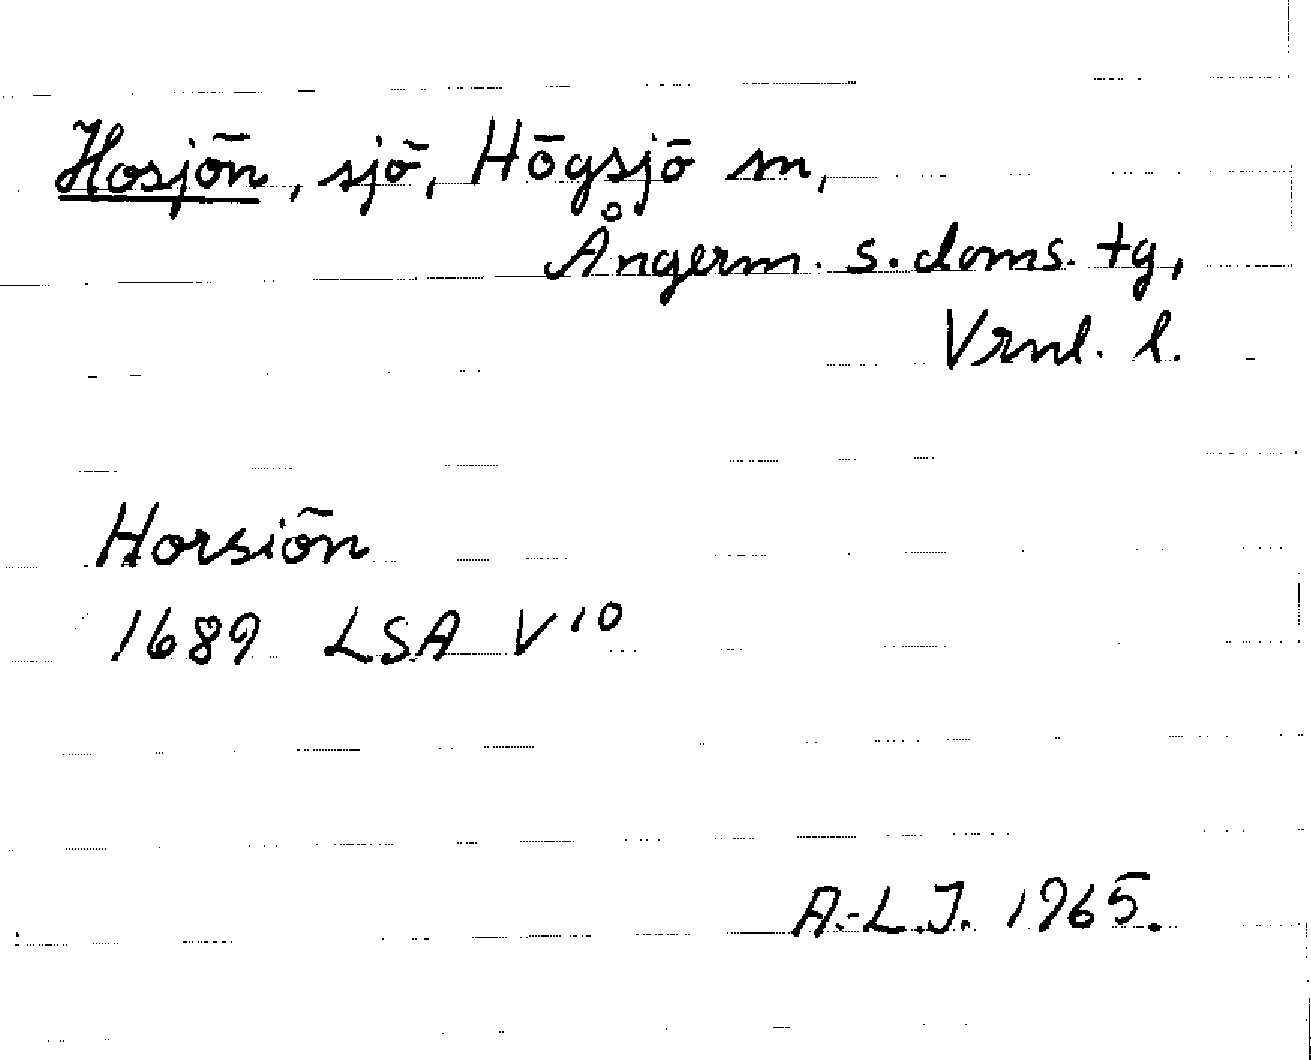 Hosjön, sjö, Högsjö sn,
Ångerm. s. doms. tg,
Vrnl. l.
Horsiön
1689 LSA V 10
A.-L.J. 1965.